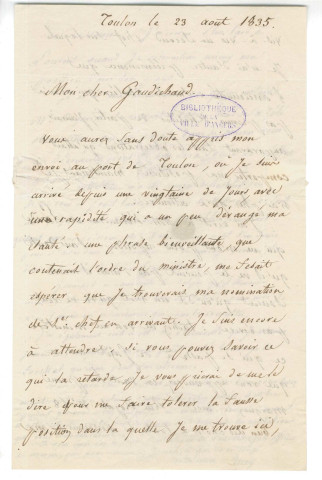 Toulon le 23 août 1835.
Mon cher Gaudichaud.
BIBLIOTHEQUE
DE LA
VILLE D'ANGERS
vous aurez sans doute appris mon
envoi au port de Toulon, où je suis
arrivé depuis une vingtaine de jours avec
une rapidité qui a un peu dérangé ma
santé. une phrase bienveillante que
contenait l'ordre du ministre, me fesait
espérer que je trouverais ma nomination
de chef en arrivant. je suis encore
à attendre. si vous pouvez savoir ce
qui la retarde je vous prierai de me le
dire pour me faire tolerer la fausse
position dans la quelle je me trouve ici,